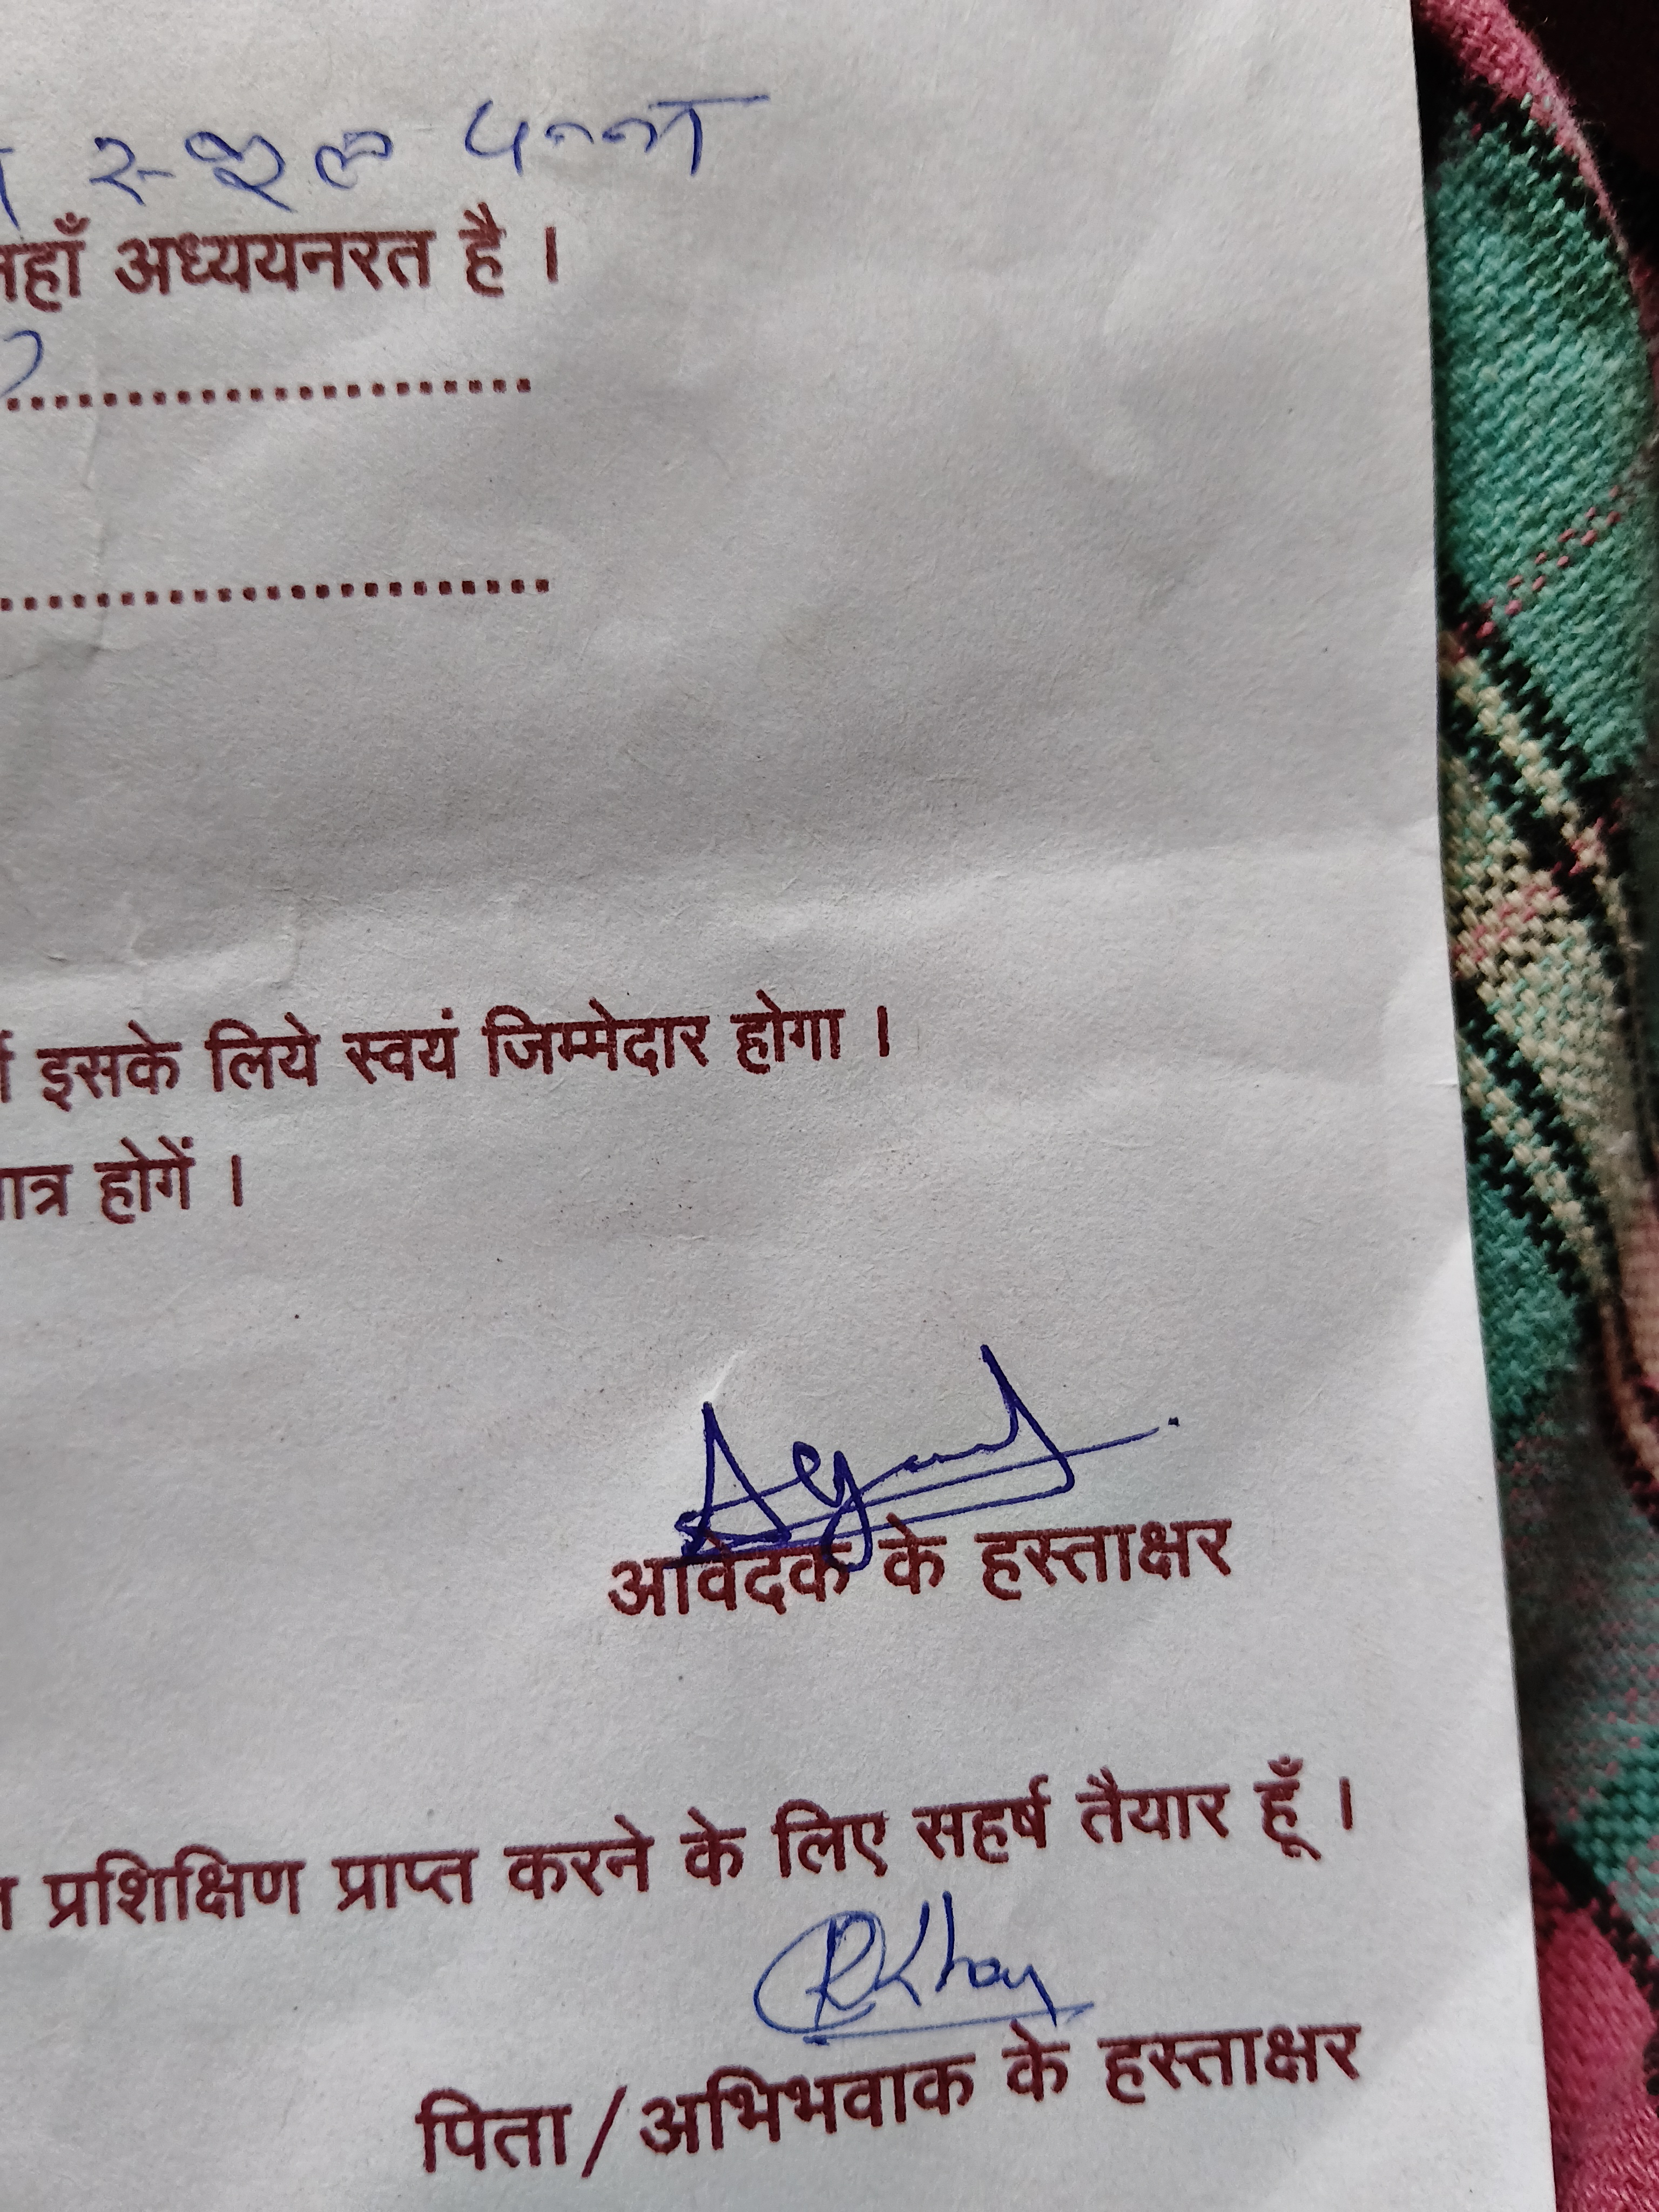 स्कूल पन्ना
जहाँ अध्ययनरत है ।
इसके लिये स्वयं जिम्मेदार होगा ।
पात्र होगें ।
आवेदक के हस्ताक्षर
प्रशिक्षिण प्राप्त करने के लिए सहर्ष तैयार हूँ ।
RKhan
पिता/अभिभवाक के हस्ताक्षर